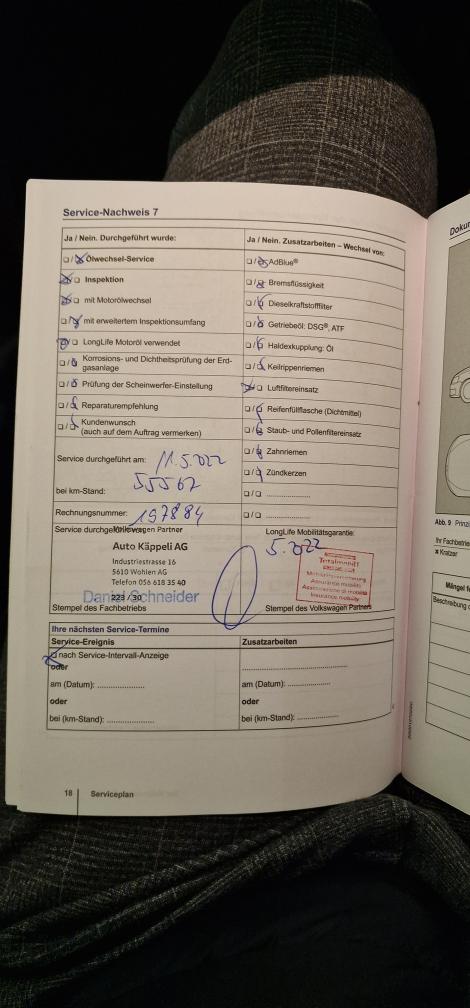 Service-Nachweis 7
Ja / Nein. Durchgeführt wurde:
Ölwechsel-Service
Inspektion
mit Motorölwechsel
mit erweitertem Inspektionsumfang
LongLife Motoröl verwendet
Korrosions- und Dichtheitsprüfung der Erd-
gasanlage
Prüfung der Scheinwerfer-Einstellung
Reparaturempfehlung
Kundenwunsch
(auch auf dem Auftrag vermerken)
Service durchgeführt am: 11.5.2022
bei km-Stand: 55562
Rechnungsnummer: 197884
Service durchgeführt
Volkswagen Partner
Auto Käppeli AG
Industriestrasse 16
5610 Wohlen AG
Telefon 056 618 35 40
Daniel Schneider
Stempel des Fachbetriebs
Ja / Nein. Zusatzarbeiten – Wechsel von:
AdBlue®
Bremsflüssigkeit
Dieselkraftstofffilter
Getriebeöl: DSG®, ATF
Haldexkupplung: Öl
Keilrippenriemen
Luftfiltereinsatz
Reifenfüllflasche (Dichtmittel)
Staub- und Pollenfiltereinsatz
Zahnriemen
Zündkerzen
LongLife Mobilitätsgarantie:
5.2022
Totalmobil!
Mobilitätsversicherung
Assurance mobilité
Assicurazione di mobilità
Insurance mobility
Stempel des Volkswagen Partners
Ihre nächsten Service-Termine
Service-Ereignis
nach Service-Intervall-Anzeige
oder
am (Datum): ................
oder
bei (km-Stand): ................
Zusatzarbeiten
am (Datum): ................
oder
bei (km-Stand): ................
18 | Serviceplan
Abb. 9
Kratzer